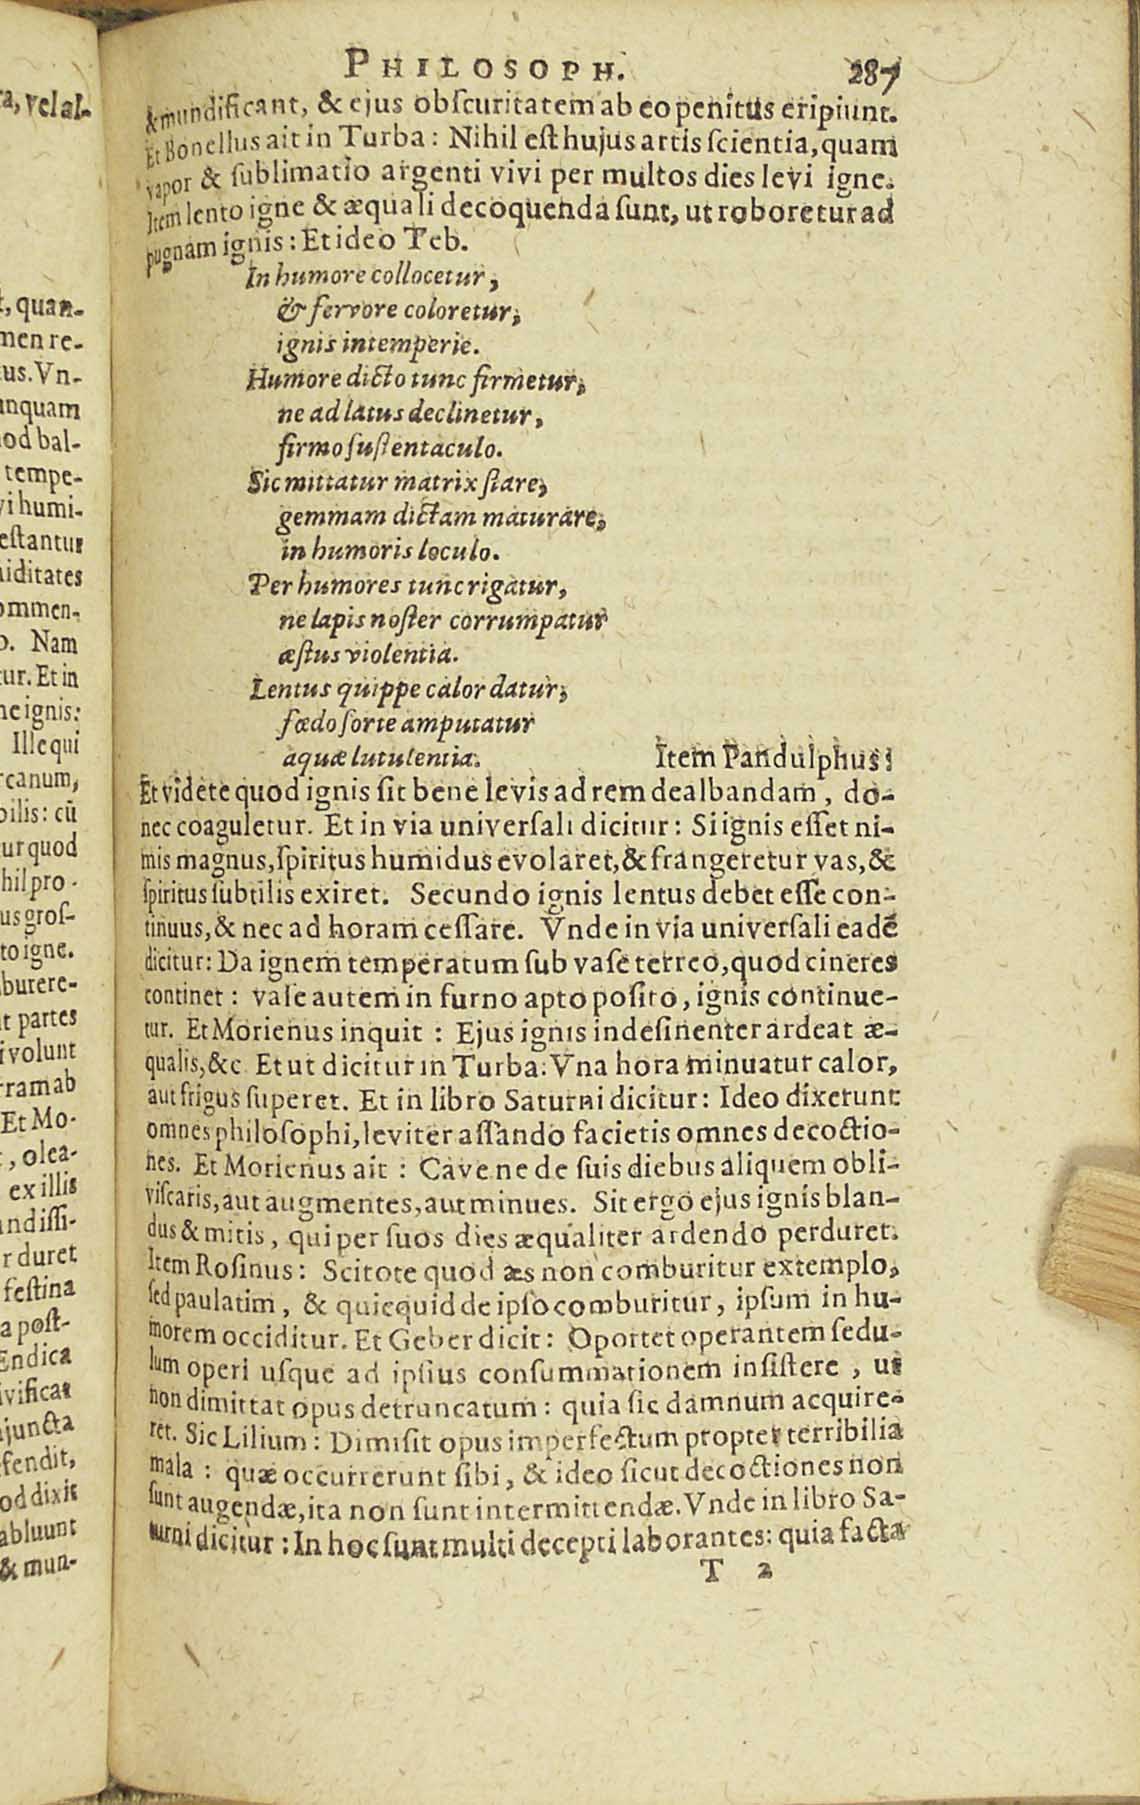 PHILOSOPH. 287
& mundificant, & ejus obscuritatem ab eo penitùs eripiunt.
Et Bonellus ait in Turba: Nihil est hujus artis scientia, quam
vapor & sublimatio argenti vivi per multos dies levi igne.
Item lento igne & æquali decoquenda sunt, ut roboretur ad
pugnam ignis: Et ideo Teb.
In humore collocetur,
& fervore coloretur,
ignis intemperie.
Humore dicto tunc firmetur,
ne ad latus declinetur,
firmo sustentaculo.
Sic mittatur matrix stare,
gemmam dictam maturare,
in humoris loculo.
Per humores tunc rigatur,
ne lapis noster corrumpatur
æstus violentia.
Lentus quippe calor datur,
fœdo sorte amputatur
aquæ lutulentia.
Item Pandulphus:
Et videte quod ignis sit bene levis ad rem dealbandam, do-
nec coaguletur. Et in via universali dicitur: Si ignis esset ni-
mis magnus, spiritus humidus evolaret, & frangeretur vas, &
spiritus subtilis exiret. Secundo ignis lentus debet esse con-
tinuus, & nec ad horam cessare. Vnde in via universali eadē
dicitur: Da ignem temperatum sub vase terreo, quod cineres
continet: vase autem in furno apto posito, ignis continue-
tur. Et Morienus inquit: Ejus ignis indesinenter ardeat æ-
qualis, &c Et ut dicitur in Turba: Vna hora minuatur calor,
aut frigus superet. Et in libro Saturni dicitur: Ideo dixerunt
omnes philosophi, leviter assando facietis omnes decoctio-
nes. Et Morienus ait: Cave ne de suis diebus aliquem obli-
viscaris, aut augmentes, aut minues. Sit ergo ejus ignis blan-
dus & mitis, qui per suos dies æqualiter ardendo perduret.
Item Rosinus: Scitote quod æs non comburitur extemplo,
sed paulatim, & quicquid de ipso comburitur, ipsum in hu-
morem occiditur. Et Geber dicit: Oportet operantem sedu-
lum operi usque ad ipsius consummationem insistere, ut
non dimittat opus detruncatum: quia sic damnum acquire-
ret. Sic Lilium: Dimisit opus imperfectum propter terribilia
mala: quæ occurrerunt sibi, & ideo sicut decoctiones non
sunt augendæ, ita non sunt intermittendæ. Vnde in libro Sa-
turni dicitur: In hoc sunt multi decepti laborantes: quia facta
T 2
a, vel al-
, quan-
men re-
us. Vn-
unquam
od bal-
tempe-
vi humi-
estantur
iditates
ommen-
o. Nam
tur. Et in
ne ignis:
Ille qui
rcanum,
bilis: cū
ur quod
hil pro-
us gros-
to igne.
burere-
t partes
i volunt
rram ab
Et Mo-
, olea-
ex illis
andissi-
r duret
festina
a post-
Endica
ivificat
juncta
fendit,
od dixit
abluunt
& mun-